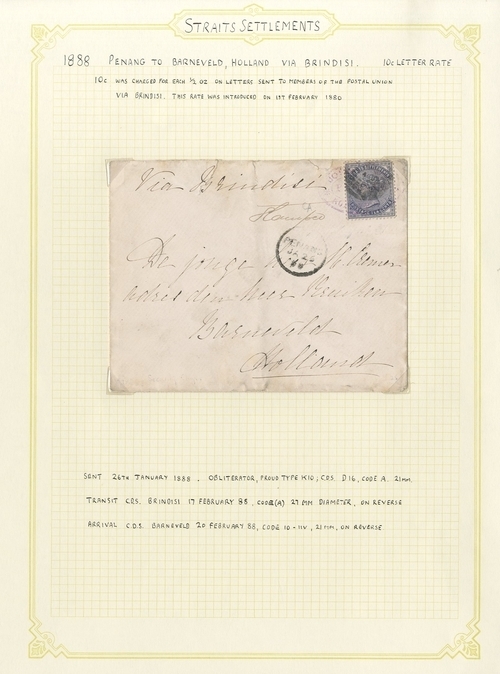 STRAITS SETTLEMENTS
1888 PENANG TO BARNEVELD, HOLLAND VIA BRINDISI. 10c LETTER RATE
10c WAS CHARGED FOR EACH ½ OZ ON LETTERS SENT TO MEMBERS OF THE POSTAL UNION
VIA BRINDISI. THIS RATE WAS INTRODUCED ON 1ST FEBRUARY 1880
Via Brindisi
PENANG
De jonge
Barneveld
Holland
SENT 26TH JANUARY 1888. OBLITERATOR, PROUD TYPE K10; CDS D16, CODE A. 21MM.
TRANSIT CDS. BRINDISI 17 FEBRUARY 88, CODE(A) 27 MM DIAMETER, ON REVERSE
ARRIVAL C.D.S. BARNEVELD 20 FEBRUARY 88, CODE 10-11V, 21MM, ON REVERSE